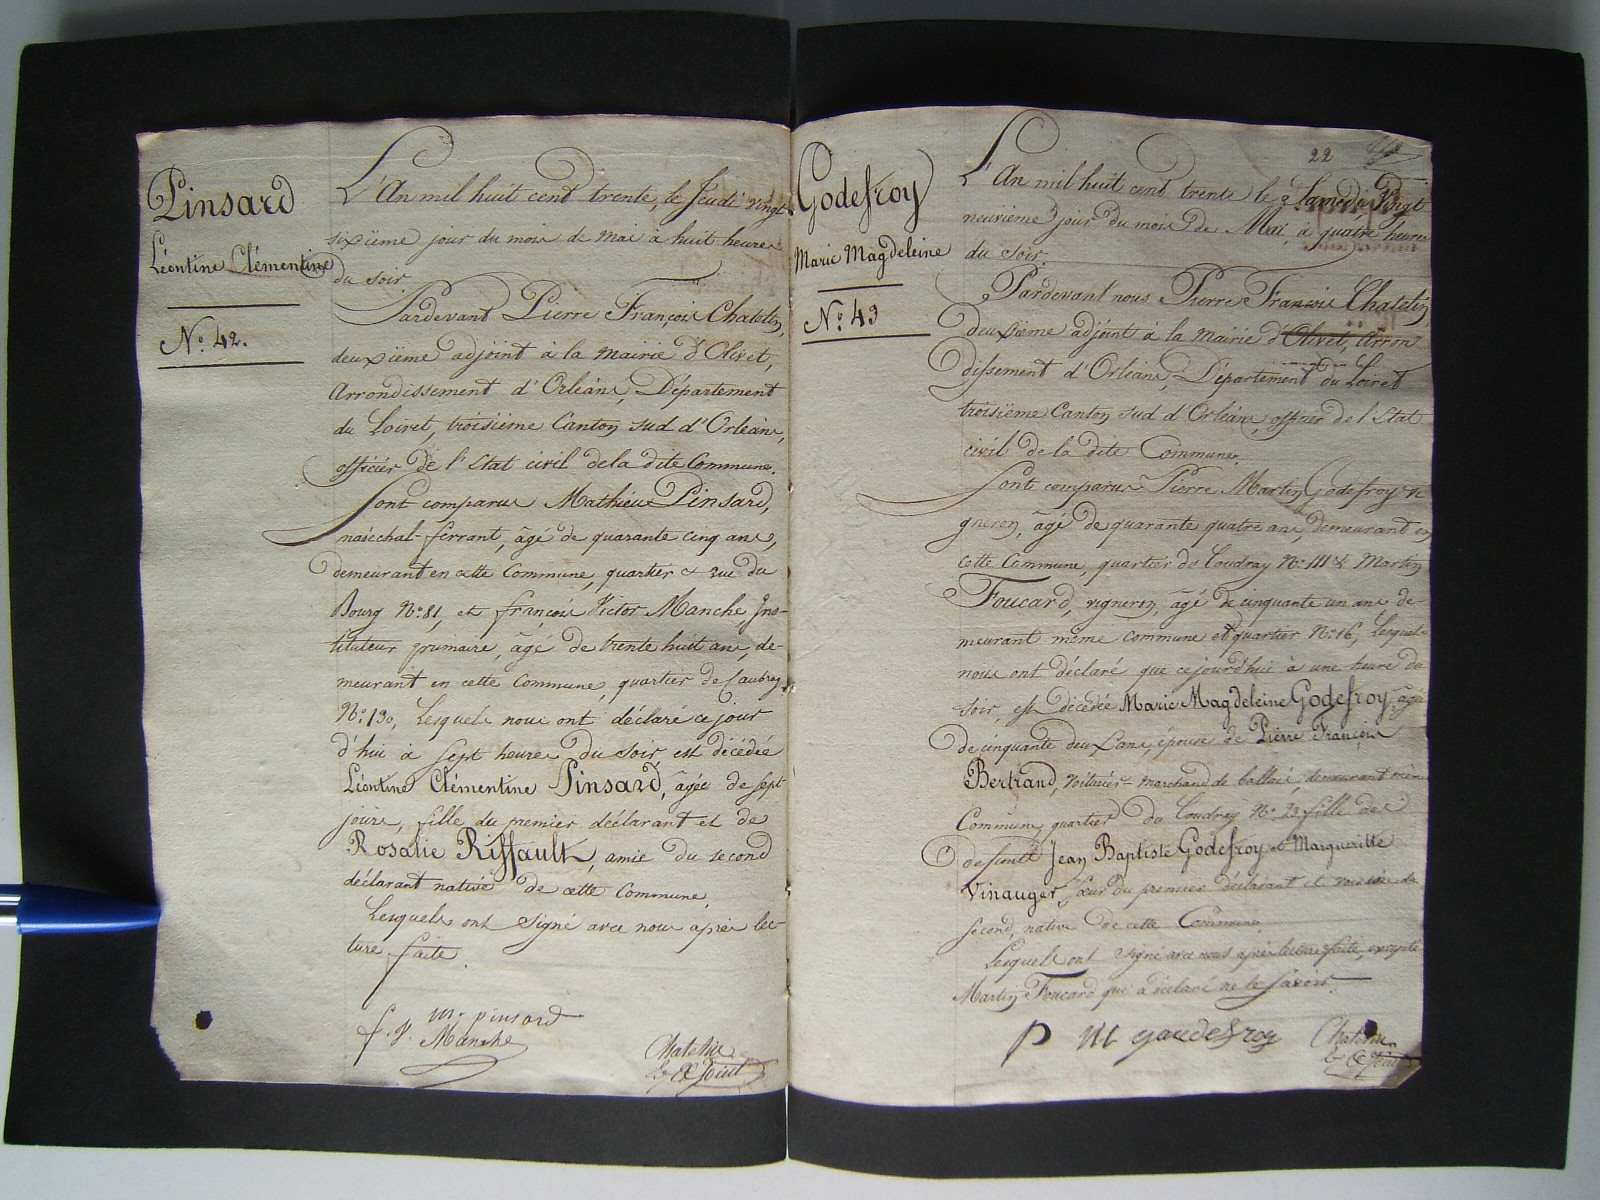 Pinsard
Léontine Clémentine
N.º 42.
L'An mil huit cent trente, le Jeudi vingt
sixième jour du mois de Mai à huit heures
du soir.
Pardevant Pierre François Chatelin,
deuxième adjoint à la Mairie d'Olivet,
Arrondissement d'Orléans, Département
du Loiret, troisième Canton sud d'Orléans,
officier de l'Etat civil de la dite Commune.
Sont comparus Mathieu Pinsard,
maréchal-ferrant, âgé de quarante cinq ans,
demeurant en cette Commune, quartier & rue du
Bourg N.º 81, et françois Victor Manche, Ins-
tituteur primaire, âgé de trente huit ans, de-
meurant en cette Commune, quartier de
N.º 130, Lesquels nous ont déclaré ce jour
d'hui à sept heures du soir, est décédée
Léontine Clémentine Pinsard, âgée de sept
jours, fille du premier déclarant et de
Rosalie Riffault, amie du second
déclarant native de cette Commune.
Lesquels ont signé avec nous après lec-
ture faite.
m. pinsard
f. V. Manche
Chatelin
adjoint
22
Godefroy
Marie Magdeleine
N.º 43
L'An mil huit cent trente le Samedi Vingt
neuvième jour du mois de Mai, à quatre heures
du soir.
Pardevant nous Pierre François Chatelin,
deuxième adjoint à la Mairie d'Olivet, Arron
dissement d'Orléans, Département du Loiret
troisième Canton sud d'Orléans, officier de l'Etat
civil de la dite Commune.
Sont comparus Pierre Martin Godefroy vi
gneron, âgé de quarante quatre ans, demeurant en
cette Commune, quartier du Coudray N.º 111 & Martin
Foucard, vigneron, âgé de cinquante un ans de-
meurant même commune et quartier N.º 16, Lesquels
nous ont déclaré que cejourd'hui à une heure du
soir, est décédée Marie Magdeleine Godefroy, âgée
de cinquante deux ans, épouse de Pierre François
Bertrand, Voiturier-marchand de balles, demeurant même
Commune, quartier du Coudray N.º 23 fille de
defunts Jean Baptiste Godefroy et Margueritte
Vinauger, sœur du premier déclarant et voisine du
second, native de cette Commune.
Lesquels ont signé avec nous après lecture faite, excepté
Martin Foucard qui a déclaré ne le savoir.
P M gaudefroy
Chatelin
adjoint